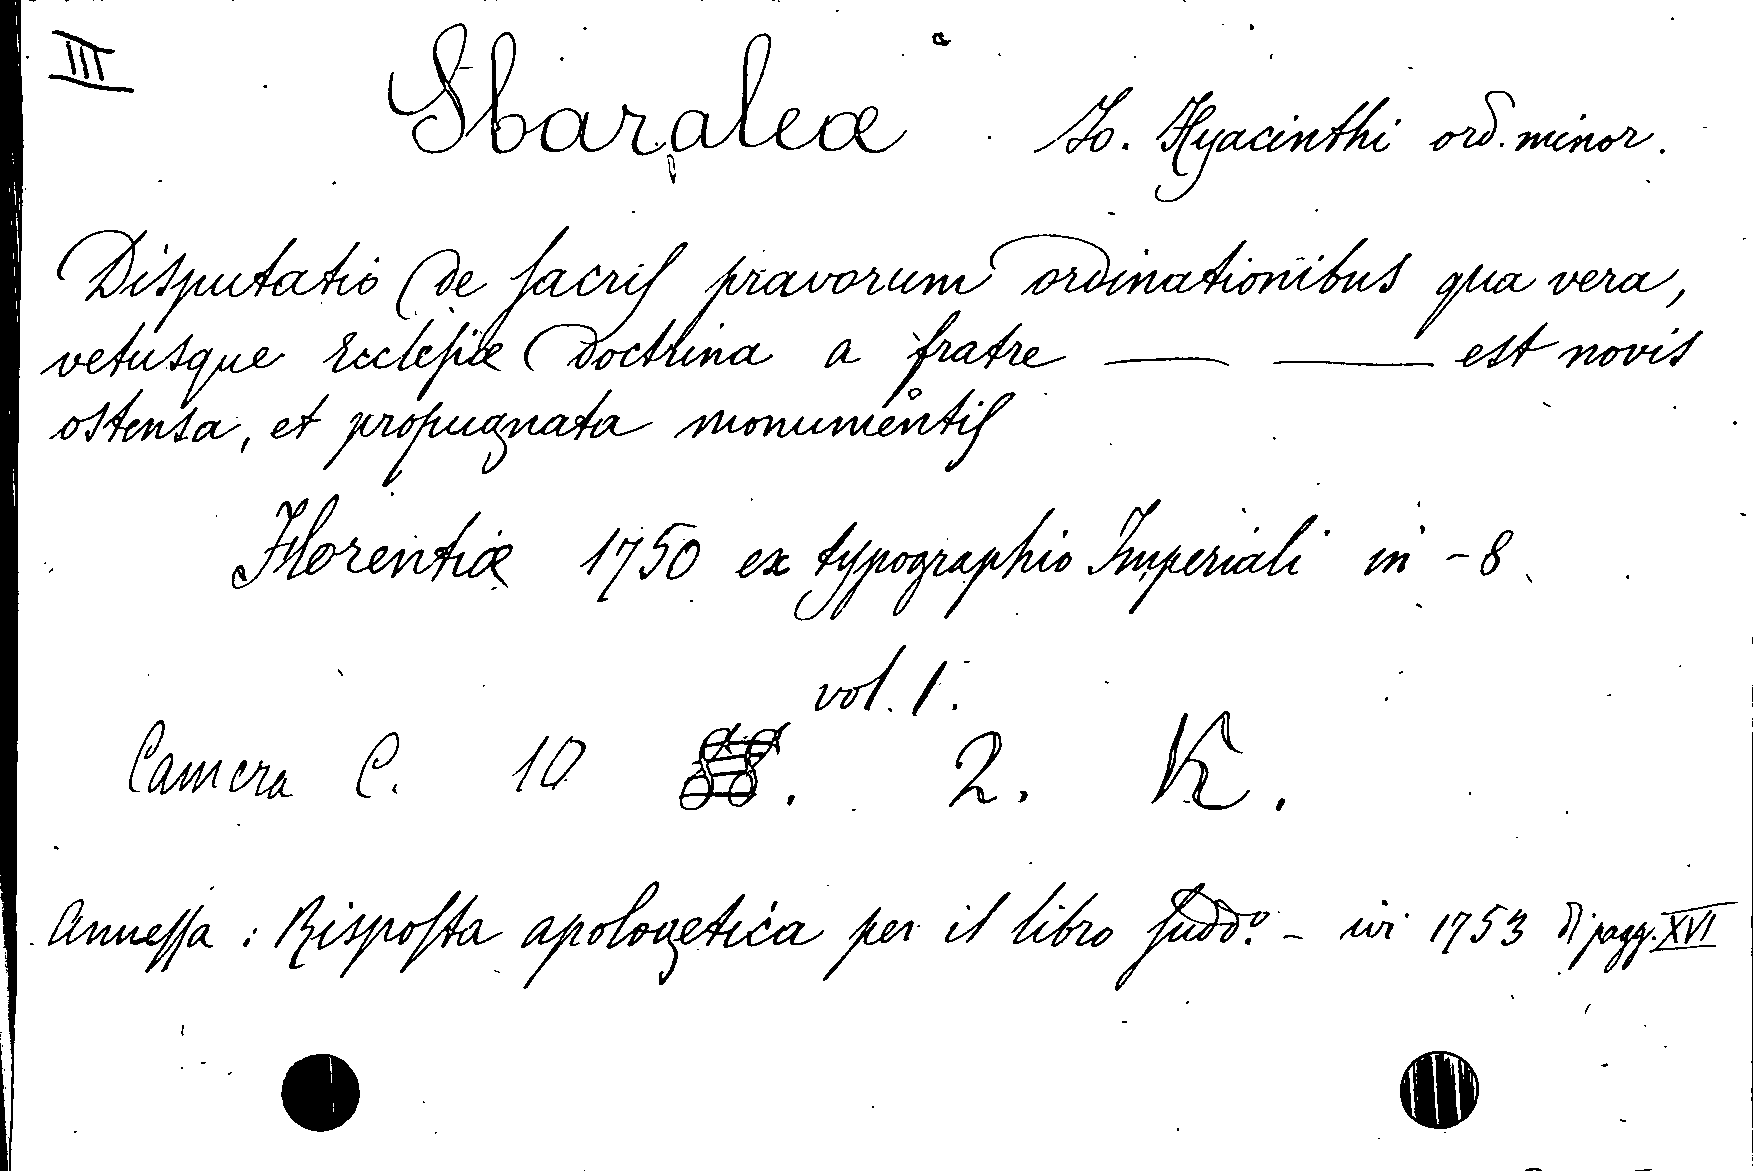 III
Sbaraleæ Io. Hyacinthi ord. minor.
Disputatio de sacris pravorum ordinationibus qua vera,
vetusque Ecclesiæ doctrina a fratre — — est novis
ostensa, et propugnata monumentis
Florentiæ 1750 ex typographio Imperiali in-8.
vol. 1.
Camera C. 10 . 2. K.
Annessa : Risposta apologetica per il libro sudd.º - ivi 1753 di pagg. XVI